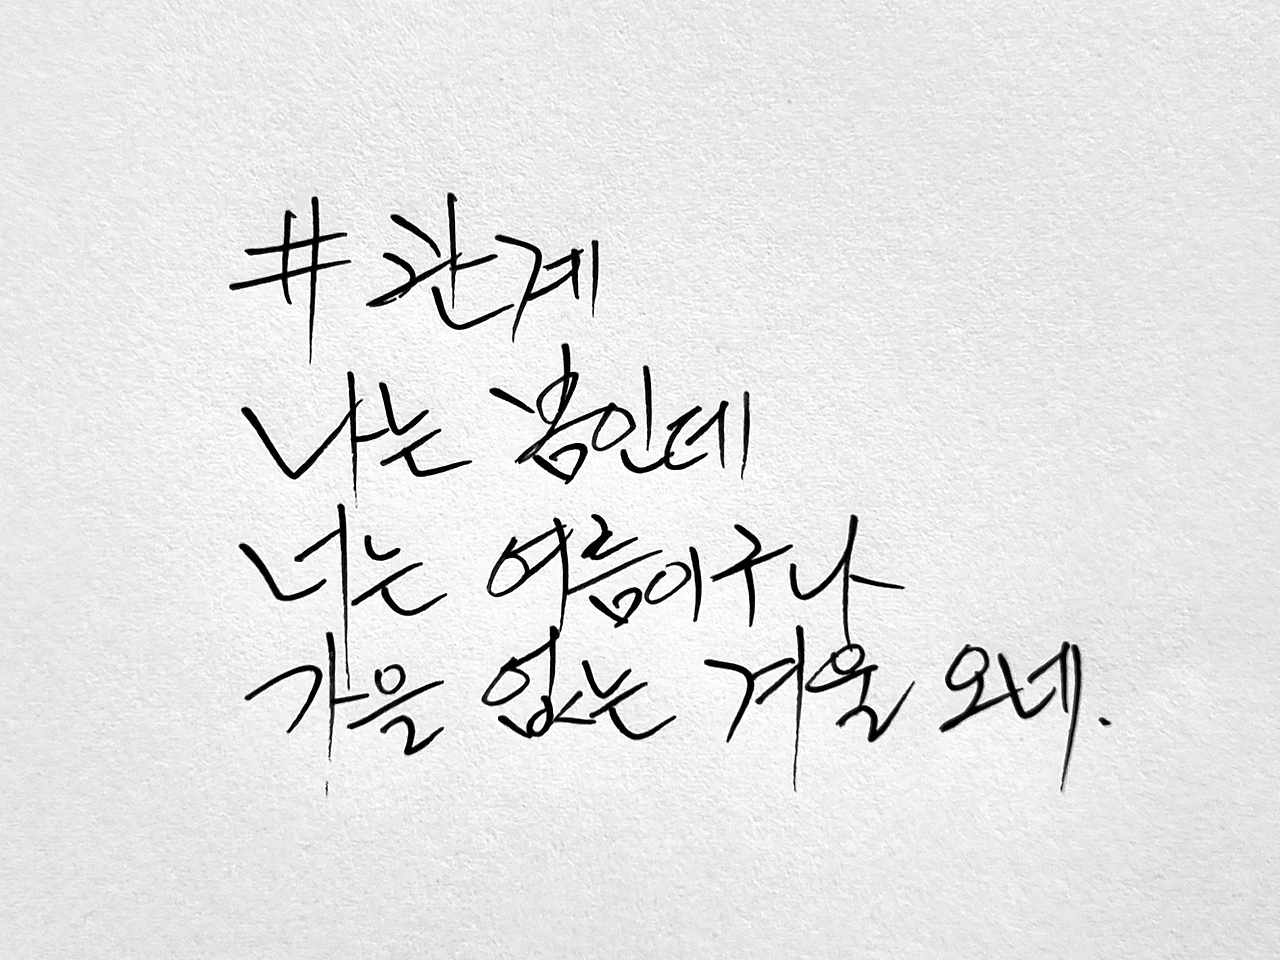 #관계
나는 봄인데
너는 여름이구나
가을 없는 겨울 오네.